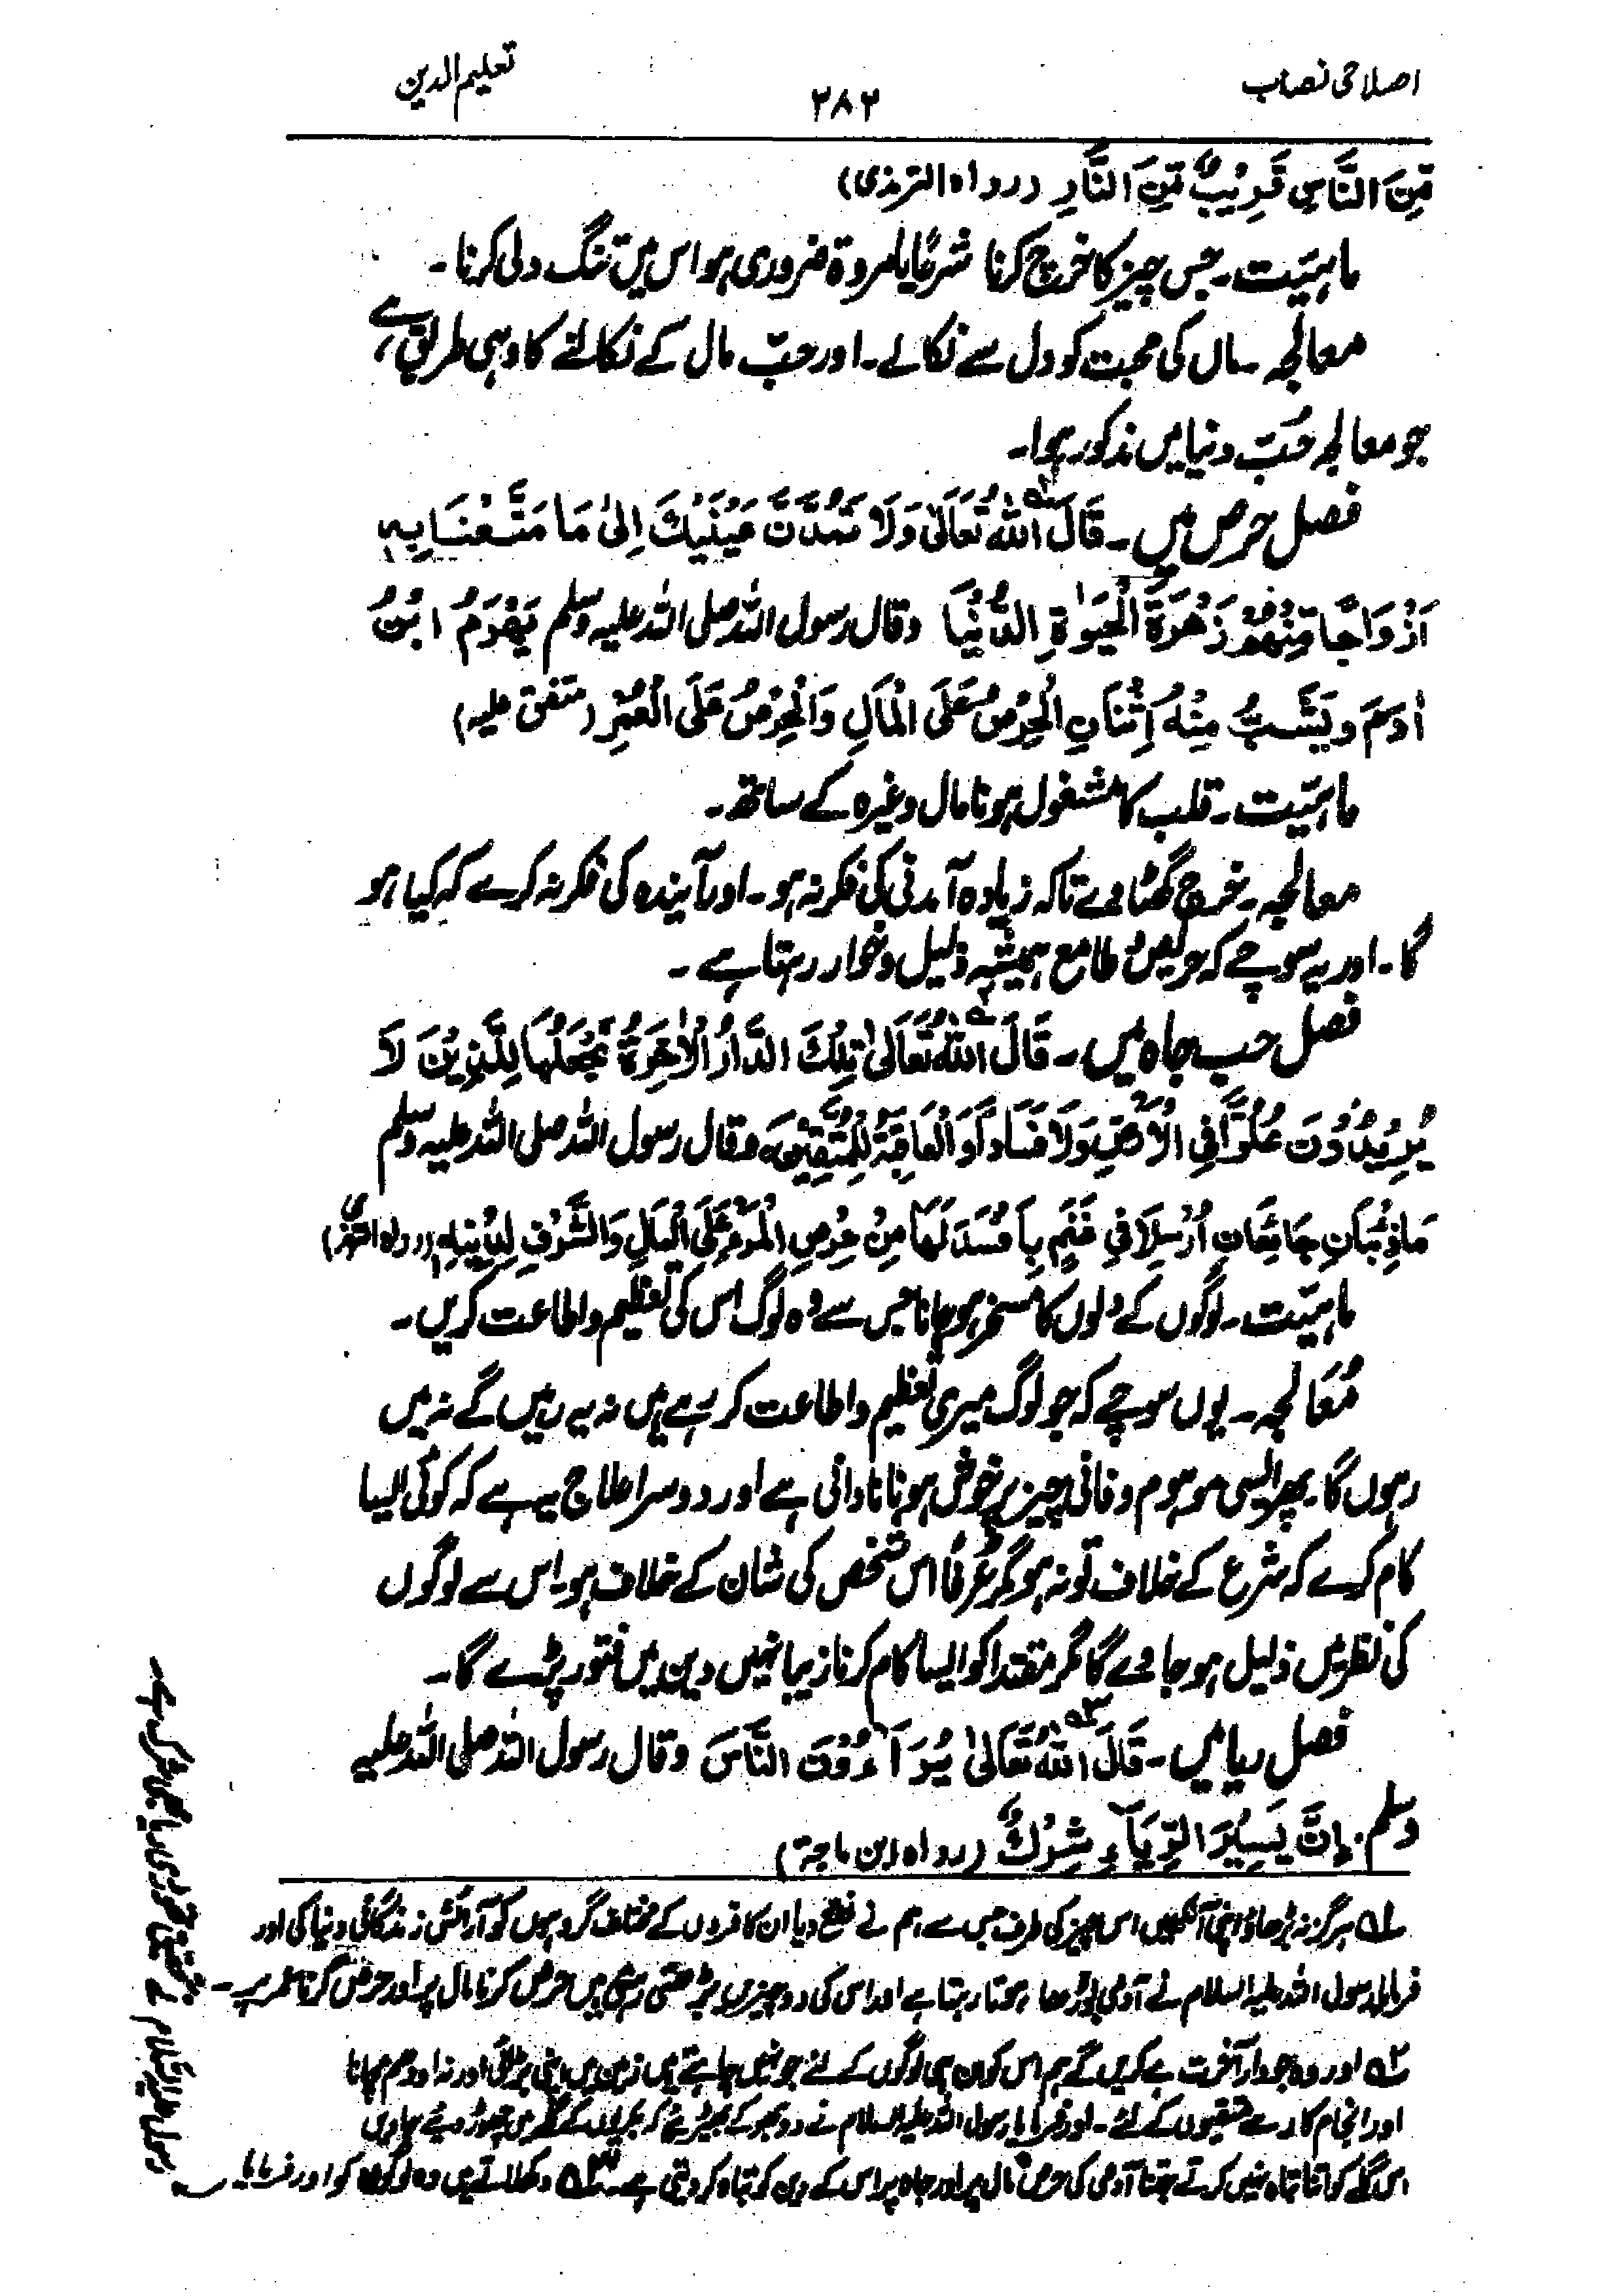 اصلاحی نصاب
۲۸۲
تعلیم الدین
مِّنَ النَّاسِ قَرِیْبٌ مِّنَ النَّارِ (رواہ الترمذی)
ماہیّت۔ جس چیز کا خرچ کرنا شرعًا یا مروۃ ضروری ہو اس میں تنگ دلی کرنا۔
معالجہ۔ مال کی محبت کو دل سے نکالے۔ اور حبّ مال کے نکالنے کا وہی طریق ہے،
جو معالجہ حُبّ دنیا میں مذکور ہوا۔
فصل حرص میں۔ قَالَ اللّٰہُ تَعَالٰی وَلَا تَمُدَّنَّ عَیْنَیْكَ اِلٰی مَا مَتَّعْنَا بِہٖ
اَزْوَاجًا مِّنْھُمْ زَھْرَۃَ الْحَیٰوۃِ الدُّنْیَا وقال رسول اللہ صلی اللہ علیہ وسلم یَھْرَمُ ابْنُ
اٰدَمَ وَیَشُبُّ مِنْہُ اِثْنَانِ الْحِرْصُ عَلَی الْمَالِ وَالْحِرْصُ عَلَی الْعُمُرِ (متفق علیہ)
ماہیّت۔ قلب کا مشغول ہونا مال وغیرہ کے ساتھ۔
معالجہ۔ خرچ گھٹاوے تاکہ زیادہ آمدنی کی فکر نہ ہو۔ اور آیندہ کی فکر نہ کرے کہ کیا ہو
گا۔ اور یہ سوچے کہ حریص و طامع ہمیشہ ذلیل و خوار رہتا ہے۔
فصل حب جاہ میں۔ قَالَ اللّٰہُ تَعَالٰی تِلْكَ الدَّارُ الْاٰخِرَۃُ نَجْعَلُھَا لِلَّذِیْنَ لَا
یُرِیْدُوْنَ عُلُوًّا فِی الْاَرْضِ وَلَا فَسَادًا وَالْعَاقِبَۃُ لِلْمُتَّقِیْنَ۔ وقال رسول اللہ صلی اللہ علیہ وسلم
مَا ذِئْبَانِ جَائِعَانِ اُرْسِلَا فِیْ غَنَمٍ بِاَفْسَدَ لَھَا مِنْ حِرْصِ الْمَرْءِ عَلَی الْمَالِ وَالشَّرَفِ لِدِیْنِہٖ (رواہ الترمذی)
ماہیّت۔ لوگوں کے دلوں کا مسخر ہو جانا جس سے وہ لوگ اس کی تعظیم و اطاعت کریں۔
مُعَالجہ۔ یوں سوچے کہ جو لوگ میری تعظیم و اطاعت کر رہے ہیں نہ یہ رہیں گے نہ میں
رہوں گا۔ پھر ایسی موہوم و فانی چیز پر خوش ہونا نادانی ہے اور دوسرا علاج یہ ہے کہ کوئی ایسا
کام کرے کہ شرع کے خلاف تو نہ ہو مگر عُرفًا اس شخص کی شان کے خلاف ہو۔ اس سے لوگوں
کی نظر میں ذلیل ہو جاوے گا مگر مقتدا کو ایسا کام کرنا زیبا نہیں دین میں فتور پڑے گا۔
فصل ریا میں۔ قَالَ اللّٰہُ تَعَالٰی یُرَآءُوْنَ النَّاسَ وقال رسول اللہ صلی اللہ علیہ
وسلم۔ اِنَّ یَسِیْرَ الرِّیَآءِ شِرْكٌ (رواہ ابن ماجۃ)
؎۱ ہرگز نہ بڑھاؤ اپنی آنکھیں اس چیز کی طرف جس سے ہم نے نفع دیا ان کافروں کے مختلف گروہوں کو آرائش زندگانی دنیا کی اور
فرمایا رسول اللہ علیہ السلام نے آدمی بوڑھا ہوتا رہتا ہے اور اس کی دو چیزیں بڑھتی رہتی ہیں حرص کرنا مال پر اور حرص کرنا عمر پر۔
؎۲ اور وہ جو دار آخرت ہے کریں گے ہم اس کو ان ہی لوگوں کے لئے جو نہیں چاہتے ہیں زمین میں اپنی بڑائی اور نہ اودھم مچانا
اور انجام کار ہے متقیوں کے لئے۔ اور فرمایا رسول اللہ علیہ السلام نے دو بھوکے بھیڑئیے کہ بکریوں کے گلے میں چھوڑ دیئے جاویں
اس گلے کو اتنا تباہ نہیں کرتے جتنا آدمی کی حرص مال پر اور جاہ پر اس کے دین کو تباہ کر دیتی ہے۔ ؎۳ دکھلاتے ہیں وہ لوگوں کو اور فرمایا
رسول علیہ السلام نے تحقیق تھوڑی ریا بھی شرک ہے۔